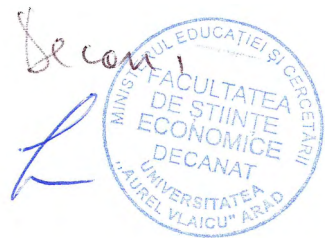 Decan,
MINISTERUL EDUCAȚIEI ȘI CERCETĂRII
FACULTATEA
DE ȘTIINȚE
ECONOMICE
DECANAT
UNIVERSITATEA
„AUREL VLAICU" ARAD